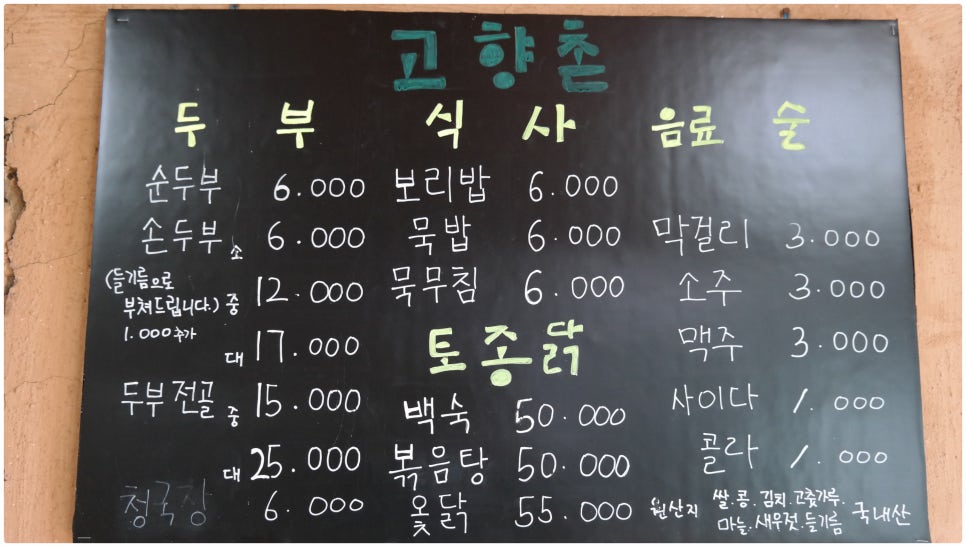 고향촌
두 부 식 사 음료 술
순두부 6.000 보리밥 6.000
손두부 소 6.000 묵밥 6.000 막걸리 3.000
(들기름으로 부쳐드립니다.) 중 12.000 묵무침 6.000 소주 3.000
1.000 추가
대 17.000 토종닭 맥주 3.000
두부전골 중 15.000 백숙 50.000 사이다 1.000
대 25.000 볶음탕 50.000 콜라 1.000
청국장 6.000 옻닭 55.000 원산지 쌀.콩.김치.고춧가루.
마늘.새우젓.들기름 국내산